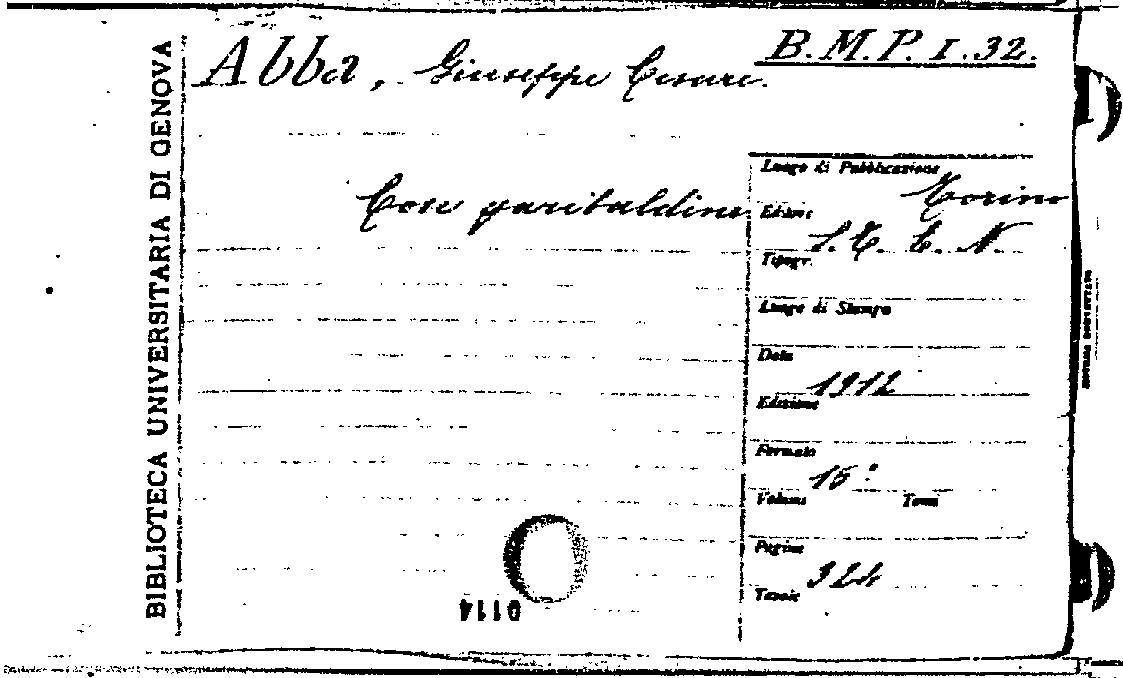 BIBLIOTECA UNIVERSITARIA DI GENOVA
Abba, Giuseppe Cesare.
B.M.P. I.32.
Cose garibaldine
Luogo di Pubblicazione
Torino
Editore
S. T. E. N.
Tipogr.
Luogo di Stampa
Data
1912
Edizione
Formato
16º
Volume Tomi
Pagine
324
Tavole
0114